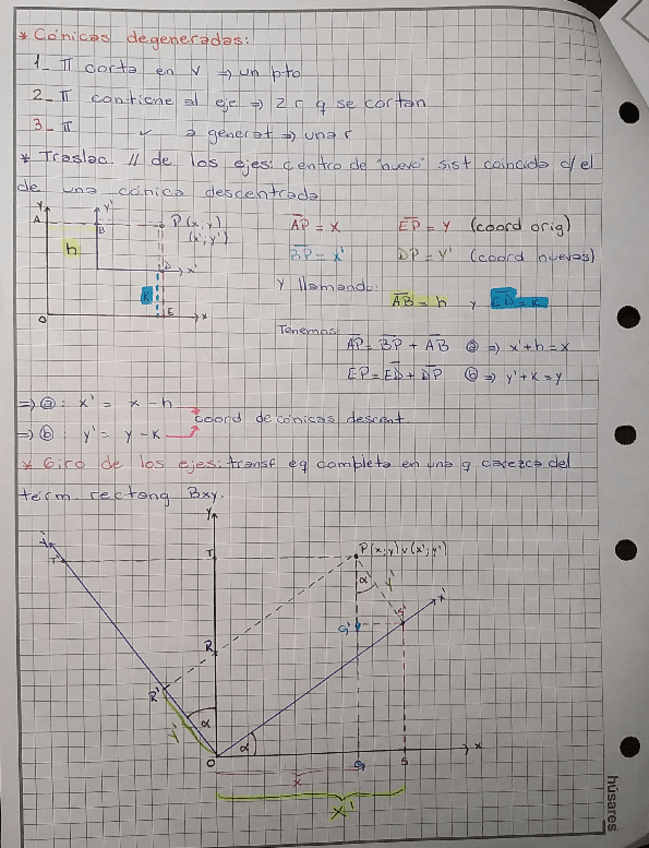 * Cónicas degeneradas:
1_ π corta en v ⇒ un pto
2_ π contiene al eje ⇒ 2 r q se cortan
3_ π " a generat ⇒ una r
* Traslac. // de los ejes: centro de "nuevo" sist coincida c/el
de una cónica descentrada
Y
Y'
A
B
P(x;y)
(x';y')
h
D
x'
K
E
O
x
AP = x EP = y (coord orig)
BP = x' DP = y' (coord nuevas)
Y llamando:
AB = h y ED = K
Tenemos
AP = BP + AB ⓐ ⇒ x'+h = x
EP = ED + DP ⓑ ⇒ y'+K = y
⇒ ⓐ: x' = x - h
coord de cónicas descent.
⇒ ⓑ: y' = y - K
* Giro de los ejes: transf eq completa en una q carezca del
térm. rectang Bxy.
Y
T
T'
P(x;y) v (x';y')
α
Y'
S'
x'
G'
R
R'
Y'
α
α
O
G
S
x
x
X'
húsares